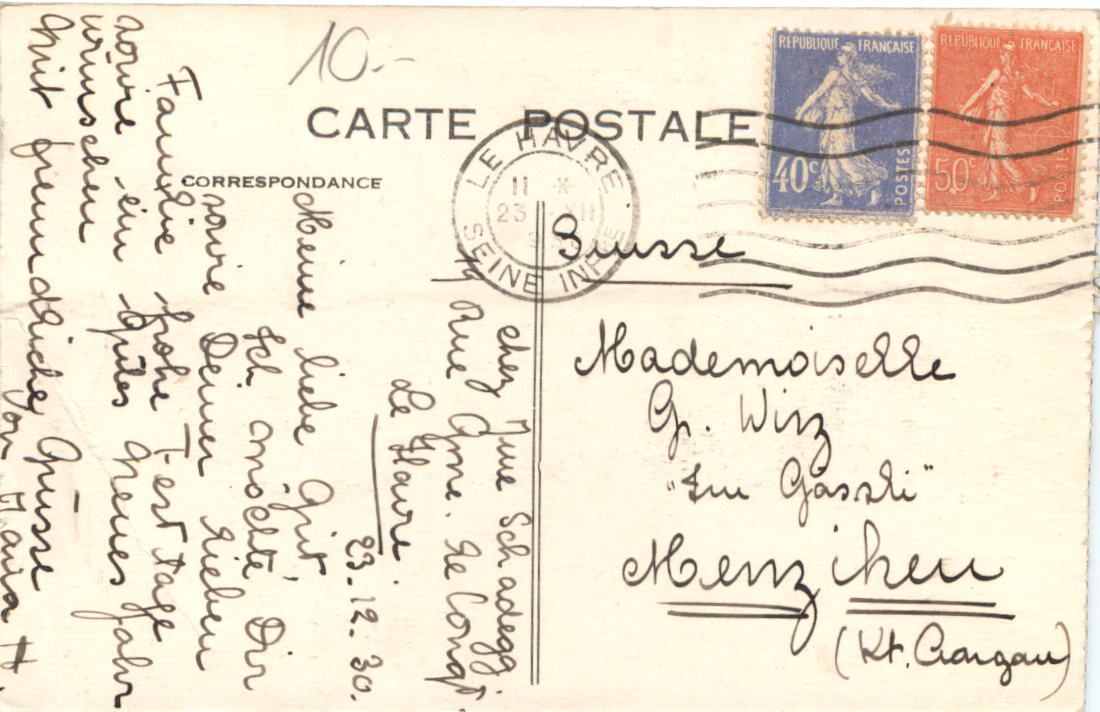 10.-
CARTE POSTALE
CORRESPONDANCE
RÉPUBLIQUE FRANÇAISE
40c
POSTES
RÉPUBLIQUE FRANÇAISE
50c
POSTES
LE HAVRE
11 *
23 XII
SEINE INFRE
Suisse
Mademoiselle
G. Wirz
"Im Gässli"
Menziken
(Kt. Aargau)
chez Mme Schadegg
Rue Gme. de Conqt
Le Havre.
23.12.30.
Meine liebe Grit
Ich möchte Dir
sowie Deiner lieben
Familie frohe Festtage
sowie ein gutes Neues Jahr
wünschen
Mit freundlichen Grüsse
von Maria H.